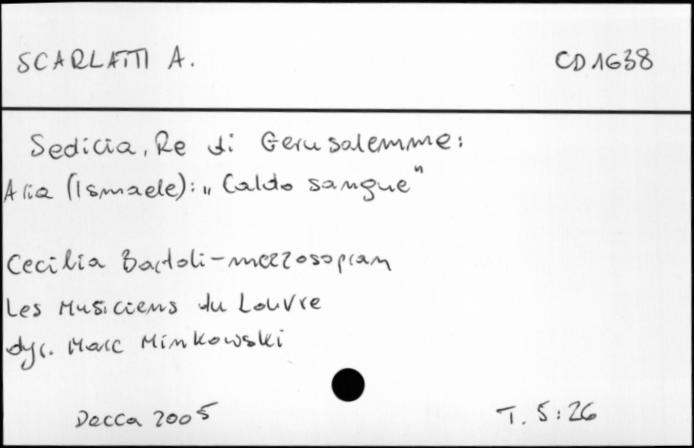 SCARLATTI A. CD 1638
Sedicia, Re di Gerusalemme:
Aria (Ismaele): „Caldo sangue"
Cecilia Bartoli - mezzosopran
Les Musiciens du Louvre
dyr. Marc Minkowski
Decca 2005 T. 5:26